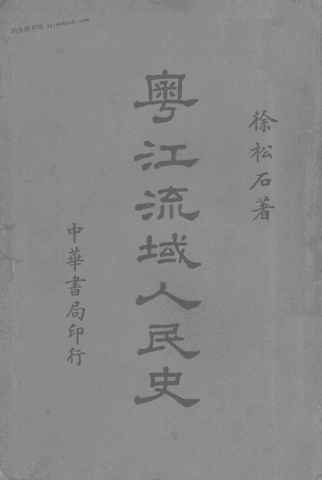 徐松石著
粤江流域人民史
中華書局印行